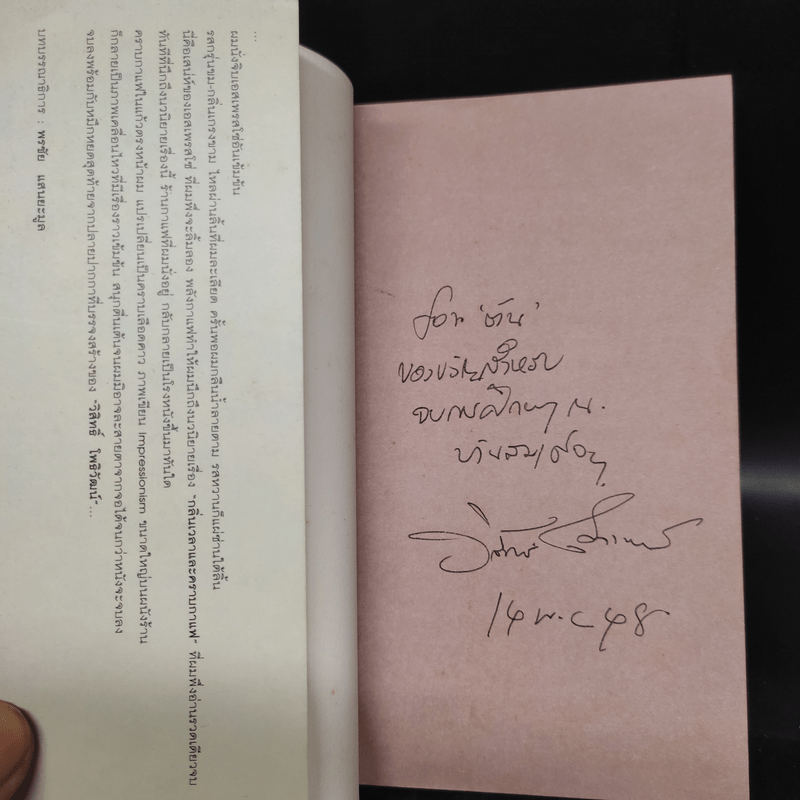 ...
ผมนั่งจิบเอสเพรสโซ่อันเข้มข้น
รสกรุ่นขม-กลิ่นเกรงขาม ไหลผ่านลิ้นที่ผมละเลียด ครั้นพอผมกลืนน้ำลายตาม รสหวานก็แผ่ซ่านใต้ลิ้น
นี่คือเสน่ห์ของเอสเพรสโซ่ ที่ผมพึ่งจะลิ้มลอง พลังกาแฟทำให้ผมนึกถึงนวนิยายเรื่อง "กลิ่นเวลาและคราบกาแฟ" ที่ผมพึ่งอ่านรวดเดียวจบ
ทันทีที่นึกถึงนวนิยายเรื่องนี้ ร้านกาแฟที่ผมนั่งอยู่ กลับกลายเป็นโรงหนังขึ้นมาทันใด
คราบกาแฟในแก้วตรงหน้าผม แปรเปลี่ยนเป็นคราบเลือดคาว ภาพเขียน Impressionism ขนาดใหญ่บนผนังร้าน
ก็กลายเป็นภาพเคลื่อนไหวที่มีเรื่องราวเข้มข้น สนุกตื่นเต้นจนผมมิอาจละสายตาจากจอได้จนกว่าหนังจะจบลง
จบลงพร้อมกับหมึกหยดสุดท้ายจากปลายปากกาที่บรรจงสร้างของ "วิสิทธิ์ โพธิวัฒน์"...
บทบรรณาธิการ : พรชัย แสนยะมูล
ของขวัญสำหรับ
จบการศึกษา ณ.
14 พ.ค 48